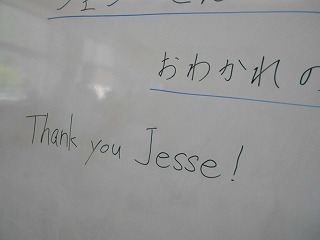 おわかれの
Thank you Jesse!